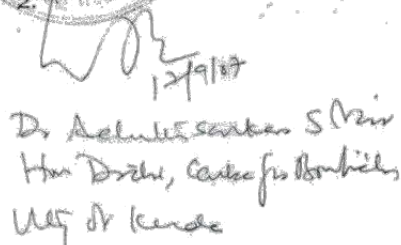 2.
12/9/07
Dr Achuthsankar S Nair
Hon Director, Centre for Bioinformatics
Univ of Kerala